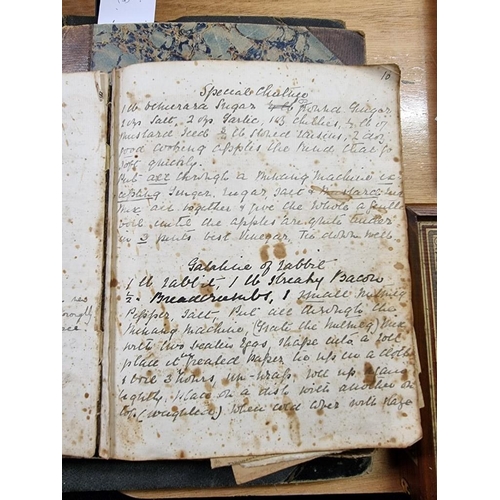 10
Special Chutney
1 lb Demerara Sugar ground Ginger
2 ozs Salt, 2 ozs Garlic, chillies, ¼ lb
mustard seed lb stoned raisins, 2 doz
good cooking apples the kind that go
soft quickly.
Put all through a Mincing Machine
Ginger, sugar, salt
Mix all together & give the whole a
boil until the apples are quite tender
in 3 pints best Vinegar. Tie down well.
Galantine of Rabbit
1 lb rabbit, 1 lb Streaky Bacon
½ Breadcrumbs, 1 small Nutmeg
Pepper, salt, Put all through the
Mincing Machine, (Grate the nutmeg) Mix
with two beaten eggs, shape into a roll
place it greased paper tie up in a cloth
& boil 3 hours, un-wrap, roll up again
tightly. Place on a dish with another on
top (weighted) When cold cover with glaze